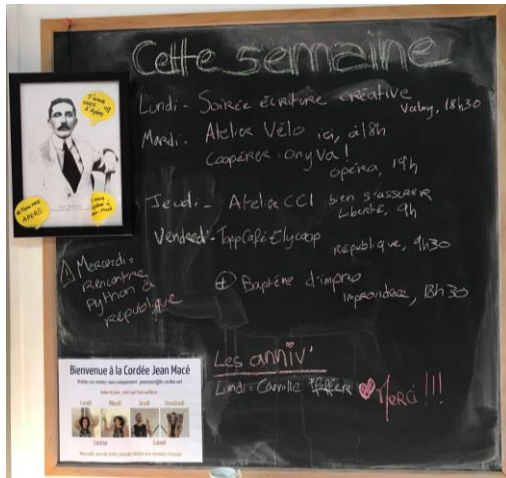 Cette semaine
Lundi - Soirée écriture créative
Valmy, 18h30
Mardi - Atelier Vélo ici, à 18h
Coopérer - on y va !
opéra, 19h
Jeudi - Atelier CCI bien s'assurer
Liberté, 9h
Vendredi - TappCafé Elycoop
République, 9h30
+ Baptême d'impro
improvidence, 18h30
Mercredi -
Rencontre
Python à
république
Les anniv'
Lundi - Camille
Merci !!!
APERO
Bienvenue à la Cordée Jean Macé
Lundi Mardi Jeudi Vendredi
Louisa Lionel